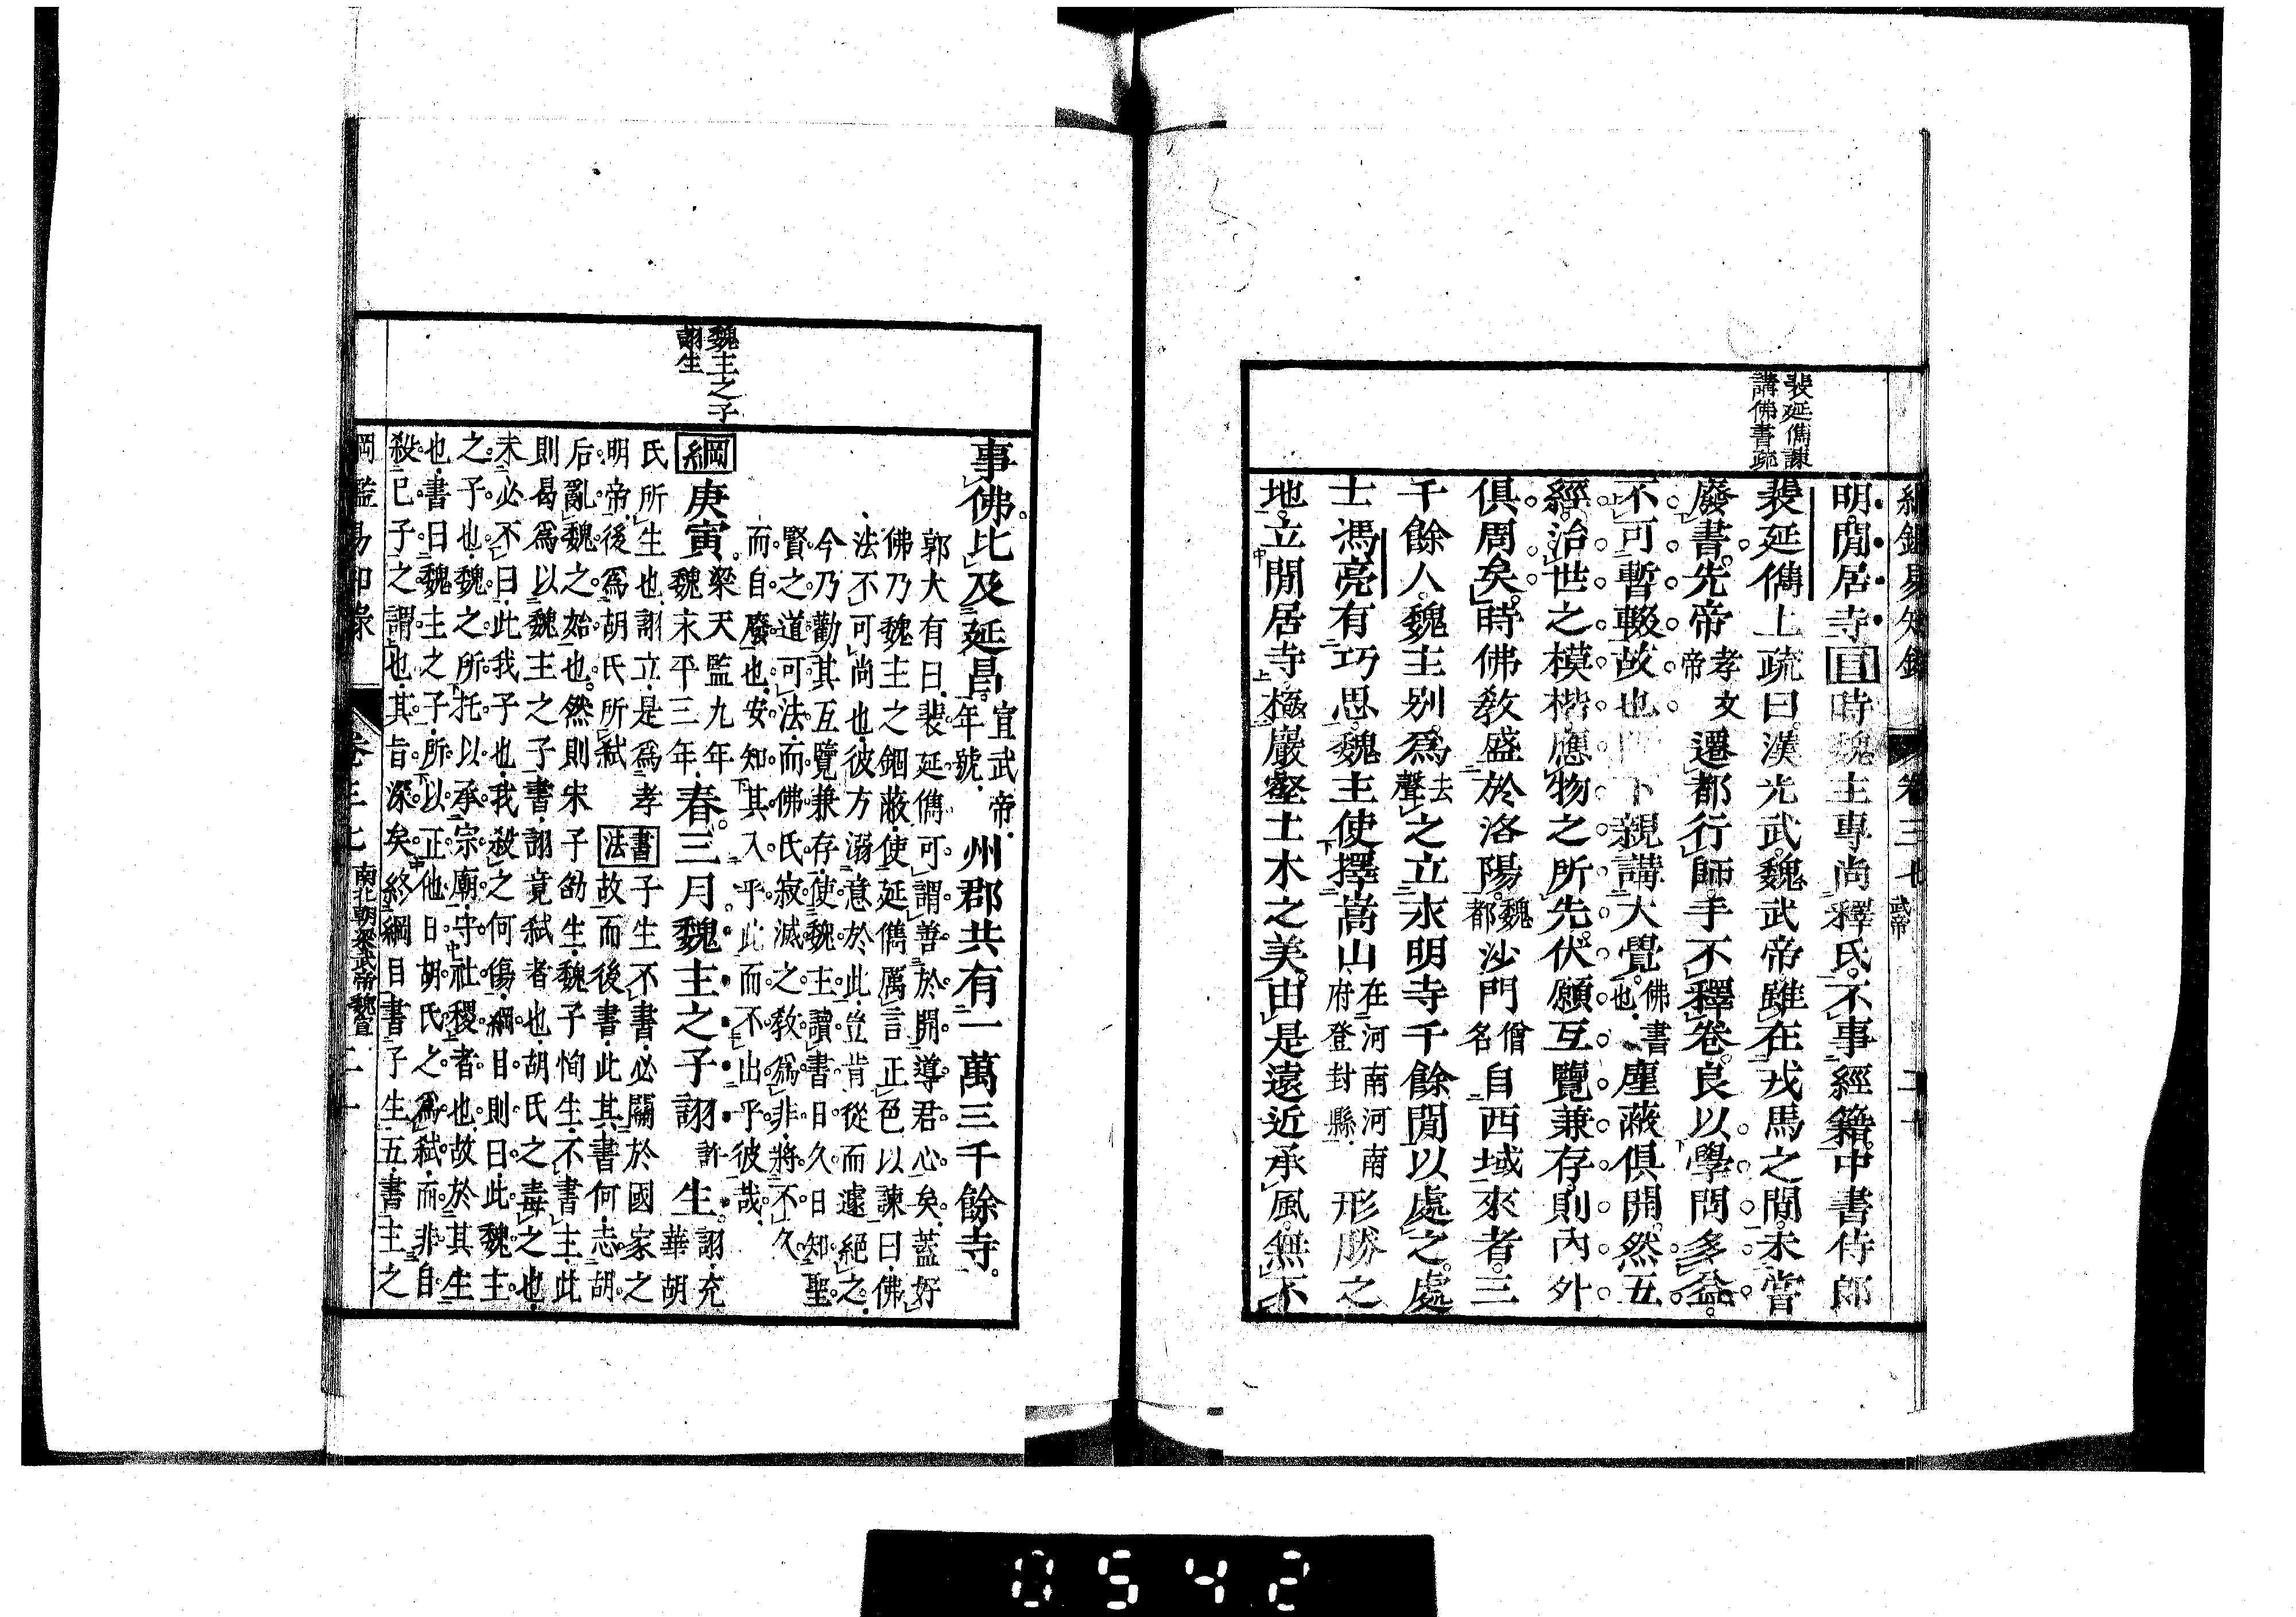 裴延儁諫
講佛書疏
明閒居寺目時魏主專尚釋氏不事經籍中書侍郎
裴延儁上疏曰漢光武魏武帝雖在戎馬之間未嘗
廢書先帝孝文帝遷都行師手不釋卷良以學問多益
不可暫輟故也陛下親講大覺佛書也塵蔽俱開然五
經治世之模楷應物之所先伏願互覽兼存則內外
俱周矣時佛教盛於洛陽魏都沙門僧名自西域來者三
千餘人魏主別為去聲之立永明寺千餘間以處之處
士馮亮有巧思魏主使擇嵩山在河南河南府登封縣形勝之
地立閒居寺極巖壑土木之美由是遠近承風無不
卷三七 武帝
魏主之子
詡生
事佛比及延昌宣武帝年號州郡共有一萬三千餘寺
郭大有曰裴延儁可謂善於開導君心矣蓋好
佛乃魏主之錮蔽使延儁厲言正色以諫曰佛
法不可尚也彼方溺意於此豈肯從而遽絕之
今乃勸其互覽兼存使魏主讀書日久日知聖
賢之道可法而佛氏寂滅之教為非將不久
而自廢也安知其入乎此而不出乎彼哉
綱庚寅梁天監九年魏永平三年春三月魏主之子詡許生詡充華胡
氏所生也詡立是為孝
明帝後為胡氏所弒書法子生不書必關於國家之
故而後書此其書何志胡
后亂魏之始也然則宋子劭生魏子恂生不書主此
則曷為以魏主之子書詡竟弒者也胡氏之毒之也
未必不曰此我子也我殺之何傷綱目則曰此魏主
之子也魏之所托以承宗廟守社稷者也故於其生
也書曰魏主之子所以正他日胡氏之為弒而非自
殺己子之謂也其旨深矣終綱目書子生五書主之
綱鑑易知錄 卷三七 南北朝梁武帝魏宣